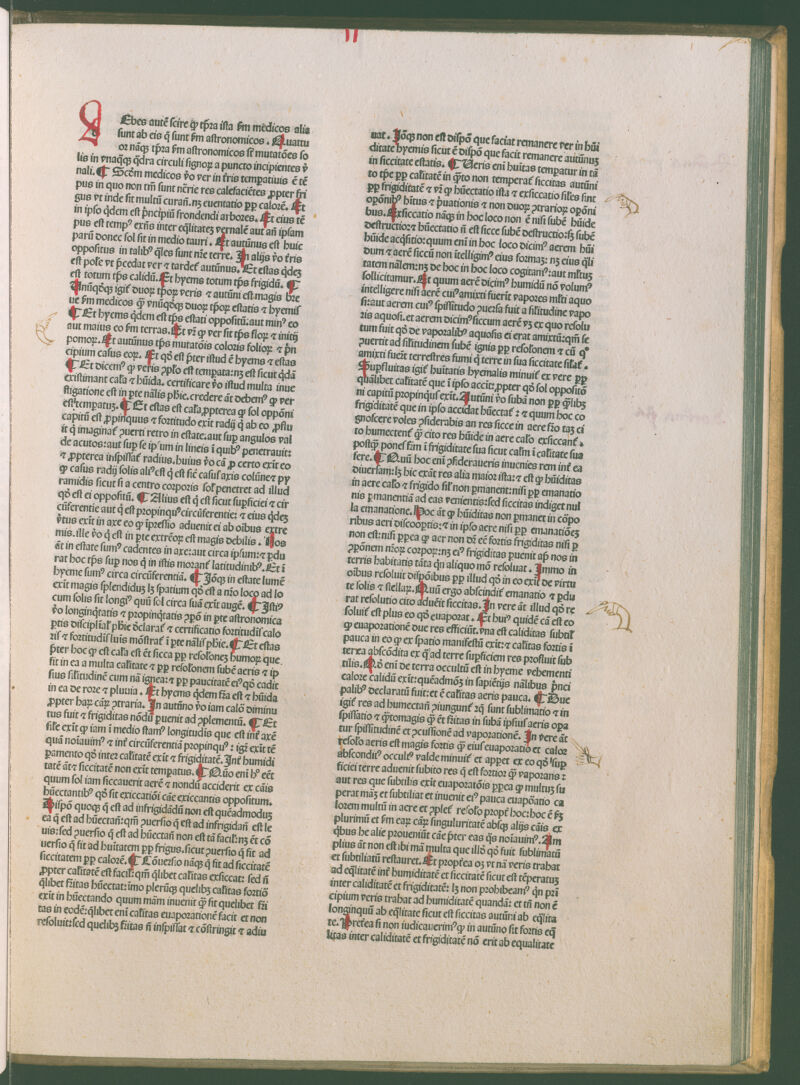 Ebes autē scire ꝙ tp̄ra ista ẜm medicos alia
sunt ab eis q̄ sunt ẜm astronomicos. Quattu
or nāqꝫ tp̄ra ẜm astronomicos sī mutatōes so
lis in vnaqꝫqꝫ q̄dra circuli signoꝝ a puncto incipientes v̄
nali. Scḋm medicos v̄o ver in t̄ris temperatiuis ē tē
pus in quo non tm̄ sunt nc̄rie res calefaciētes ꝓpter fri
gus vt inde sit multū curan̄. nꝫ euentatio ꝑꝑ calorē. Et
in ip̄so q̄dem est p̄ncipiū frondendi arbores. Et eius tē
pus est temp⁹ exn̄s inter eq̄litatē vernalē aut an̄ ipsam
parū donec sol sit in medio tauri. Et autūnus est huic
oppositus in talib⁹ q̄les sunt nr̄e terre. In alijs v̄o t̄ris
est posse vt p̄cedat ver ⁊ tardet autūnus. Et estas q̄dē
est totum tp̄s calidū. Et hyems totum tp̄s frigidū.
Vnūqōqꝫ igit̄ duoꝝ tp̄oꝝ veris ⁊ autūni est magis bre
ue ẜm medicos ꝙ vnūqōqꝫ duoꝝ tp̄oꝝ estatis ⁊ hyemis
Et hyems q̄dem est tp̄s estati oppositū: aut min⁹ eo
aut maius eo ẜm terras. Et vī ꝙ ver sit tp̄s floꝝ ⁊ initij
pomoꝝ. Et autūnus tp̄s mutatōis coloris folioꝝ ⁊ p̄n
cipium casus eoꝝ. Et qō est p̄ter istud ē hyems ⁊ estas
Et dicem⁹ ꝙ veris ꝓ̄lo est temperata: nꝫ est sicut q̄dā
existimant cal̄a ⁊ hūida. certificare v̄o istud multa inue
stigatione est in pte nāl̄is ph̄ie. credere āt debem⁹ ꝙ ver
est temperatuꝫ. Et estas est cal̄a, ꝓpterea ꝙ sol opponi
capitū est ꝓpinquus ⁊ fortitudo exit radij q̄ ab eo ꝓflu
it q̄ imaginat̄ p̄uerti retro in estate. aut sup angulos val
de acutos: aut sup se ip̄um in lineis ī quib⁹ penetrauit:
⁊ ꝓpterea inspissat̄ radius. huius v̄o cā ꝓ certo exit eo
ꝙ casus radij solis ali⁹ est q̄ est sic̄ casus axis colūne ⁊ py
ramidis sicut si a centro corporis sol̄ penetret ad illud
qō est ei oppositū. Alius est q̄ est sicut sup̄ficiei ⁊ cir
cūferentie aut q̄ est ꝓpinqu⁹ circūferentie: ⁊ eius q̄dez
v̄tus exit in axe eo ꝙ īp̄ressio aduenit ei ab oībus extre
mis. ille v̄o q̄ est in pte extreōꝝ est magis debilis. Nos
āt in estate sum⁹ cadentes in axe: aut circa ipsum: ⁊ ꝑdu
rat hoc tp̄s sup nos q̄ in istis morant̄ latitudinib⁹. Et ī
hyeme sum⁹ circa circūferentiā. Idqꝫ in estate lumē
exit magis splendidus lꝫ spatium qō est a nr̄o loco ad lo
cum solis sit longi⁹ quū sol circa suā exit auge. Isti⁹
v̄o longinq̄tatis ⁊ ꝓpinq̄tatis ꝓpō in pte astronomica
ptis discipl̄inal̄ ph̄ie declarat̄ ⁊ certificatio fortitudīs calo
ris ⁊ fortitudīs luīs mōstrat̄ ī pte nāl̄i ph̄ie. Et estas
ꝑter hoc ꝙ est cal̄a est ēt sicca ꝑꝑ resol̄onē humoꝝ que
sit in ea a multa caliditate ⁊ ꝑꝑ resol̄onem subē aeris ⁊ ip
sius sil̄itudinē cum nā ignea: ⁊ ꝑꝑ paucitatē ei⁹ qō cadit
in ea de rore ⁊ pluuia. Et hyems q̄dem frīa est ⁊ hūida
ꝓpter haꝝ cāꝝ ꝯtraria. In autūno v̄o iam calor diminu
tus fuit ⁊ frigiditas nōdū puenit ad ꝯplementū. Et
sil̄e exit ꝙ iam ī medio stam⁹ longitudis que est int̄ axē
quā noīauim⁹ ⁊ int̄ circūferentiā ꝓpinqu⁹: igit̄ exit tē
pamento qō inter caliditatē exit ⁊ frigiditatē. Int̄ humidi
tatē āt ⁊ siccitatē non exit temperatus. Quō eni h⁹ eēt
quum sol iam siccauerit aerē ⁊ nondū acciderit ex cāis
hūectantib⁹ qō sit exiccatiōi cāe exiccantis oppositum.
Dispō quoqꝫ q̄ est ad infrigidādū non est quēadmoduꝫ
ea q̄ est ad hūectan̄: qm̄ ꝯuersio q̄ est ad infrigidan̄ est le
uis: sed ꝯuersio q̄ est ad hūectan̄ non est tā facil̄: nꝫ ēt cō
uersio q̄ fit ad hūitatem ꝑꝑ frigus. sicut ꝯuersio q̄ fit ad
siccitatem ꝑꝑ calorē. Cōuersio nāqꝫ q̄ fit ad siccitatē
ꝓpter calitatē est facil̄: qm̄ q̄libet cal̄itas exsiccat: sed n̄
q̄libet fr̄itas hūectat: imo plerūqꝫ quelibꝫ cal̄itas fortiō
exit in hūectando quum mām inuenit ꝙ sit quelibet frī
tas in eodē: q̄libet eni cal̄itas euaporationē facit et non
resoluit: sed quelibꝫ frīitas n̄ inspissat ⁊ cōstringit ⁊ adiu
uat. Idqꝫ non est dispō que faciat remanere ver in hūi
ditate hyemis sicut ē dispō que facit remanere autūnuꝫ
in siccitate estatis. Ueris eni hūitas temperatur in tā
to tp̄e ꝑꝑ calitatē in q̄to non temperat̄ siccitas autūni
ꝑꝑ frigiditatē ⁊ vī ꝙ hūectatio ista ⁊ exsiccatio sil̄es sint
opōnib⁹ hītus ⁊ p̄uationis ⁊ non duoꝝ ꝯtrarioꝝ opōni
bus. Exsiccatio nāqꝫ in hoc loco non ē nisi subē hūide
destructio: ⁊ hūectatio n̄ est sicce subē destructio: sꝫ subē
hūide acq̄sitio: quum eni in hoc loco dicim⁹ aerem hūi
dum ⁊ aerē siccū non itelligim⁹ eius formaꝫ: nꝫ eius q̄li
tatem nālem: nꝫ de hoc in hoc loco cogitam⁹: aut mltuꝫ
sollicitamur. At quum aerē dicim⁹ humidū nō volum⁹
intelligere nisi aerē cui⁹ amixti fuerit vapores mlti aquo
si: aut aerem cui⁹ spissitudo ꝯuersa fuit a sil̄itudine vapo
ris aquosi. et aerem dicim⁹ siccum aerē vꝫ ex quo resolu
tum fuit qō de vaporalib⁹ aquosis ei erat amixtū: qm̄ se
ꝯuertit ad sil̄itudinem subē ignis ꝑꝑ resol̄onem ⁊ cū q̊
amixti fuēt terrestres fumi q̄ terre in sua siccitate sil̄at̄.
Supfluitas igit̄ hūitatis hyemalis minuit̄ ex vere ꝑꝑ
qualibet calitatē que ī ipso accīt: ꝓpter qō sol opposito
ni capitū ꝓpinqu⁹ exit. Autūni v̄o subā non ꝑꝑ q̄libꝫ
frigiditatē que in ipso accidat hūectat̄: ⁊ quum hoc co
gnoscere voles ꝯsiderabis an res sicce in aere frīo taꝫ ci
to humectent̄ ꝙ cito res hūide in aere cal̄o exsiccant̄.
postꝙ̄ ponef̄ fam ī frigiditate sua sicut calm̄ ī calitate sua
fere. Quū hoc eni ꝯsideraueris inuenies rem int̄ ea
diuersam: lꝫ hic exāt res alia maior ista: ⁊ est ꝙ hūiditas
in aere cal̄o ⁊ frigido sil̄ non pmanent: nisi ꝑꝑ emanatio
nis pmanentiā ad eas venientis: sed siccitas indiget nul
la emanatione. Hoc āt ꝙ hūiditas non pmanet in cōpo
ribus aeri discooptis: ⁊ in ipso aere nisi ꝑꝑ emanatiōes
non est: nisi ppea ꝙ aer non dȓ eē fortis frigiditas nisi ꝑ
ꝯpōnem nr̄oꝝ corpoꝝ: nꝫ ei⁹ frigiditas puenit ap̄ nos in
terris habitatis tāta q̄n aliquo mō resoluat. Immo in
oibus resoluit dispōibus ꝑꝑ illud qō in eo exit de virtu
te solis ⁊ stellaꝝ. Quū ergo abscindit̄ emanatio ⁊ pdu
rat resolutio cito aduēit siccitas. In vere āt illud qō re
soluit̄ est plus eo qō euaporat̄. Et hui⁹ quidē cā est eo
ꝙ euaporationē due res efficiūt. vna est caliditas subtil̄
pauca in eo ꝙ ex spatio manifestū exit: ⁊ calitas fortis ī
terrea abscōdita ex q̄ ad terre supficiem res profluit sub
tilis. Nō eni de terra occultū est in hyeme vehementi
calore calidū exit: quēadmoꝫ in sapiētijs nāl̄ibus p̄nci
palib⁹ declaratū fuit: et ē cal̄itas aeris pauca. Due
igit̄ res ad humectan̄ ꝯiungunt̄ zq̄ sunt sublimatio ⁊ in
spissatio ⁊ q̄tomagis ꝙ ēt fr̄itas in subā ipsius aeris opa
tur spissitudinē et ꝑcussionē ad vaporationē. In vere āt
resol̄o aeris est magis fortis ꝙ eius euaporatio et calor
abscondit⁹ occult⁹ valde minuit̄ et appet ex eo qō supf
ficiei terre aduenit subito res q̄ est fortior ꝙ vaporans:
aut res que subtilis exit euaporatōis ppea ꝙ multuꝫ su
perat mām et subtiliat et inuenit ei⁹ pauca euapōatio ca
lorem multū in aere et ꝯplet̄ resol̄o prop̄t hoc: hoc ē ẜm
plurimū et ẜm caꝝ caꝝ singularitatē absqꝫ alijs cāis ex
q̄bus hec alie proueniūt cāe p̄ter eas q̄s noīauim⁹. Am
plius āt non est ibi mā multa que illō qō fuit sublimatū
et subtiliatū restauret. Et proptea oꝫ vt nā veris trahat
ad eq̄litatē int̄ humiditatē et siccitatē sicut est tēperatus
inter caliditatē et frigiditatē: lꝫ non prohibeam⁹ q̄n pri
cipium veris trahat ad humiditatē quandā: et tn̄ non ē
longinquū ab eq̄litate sicut est siccitas autūni ab eq̄lita
te. Pretea si non iudicauerim⁹ ꝙ in autūno sit fortis eq̄
litas inter caliditatē et frigiditatē nō erit ab equalitate